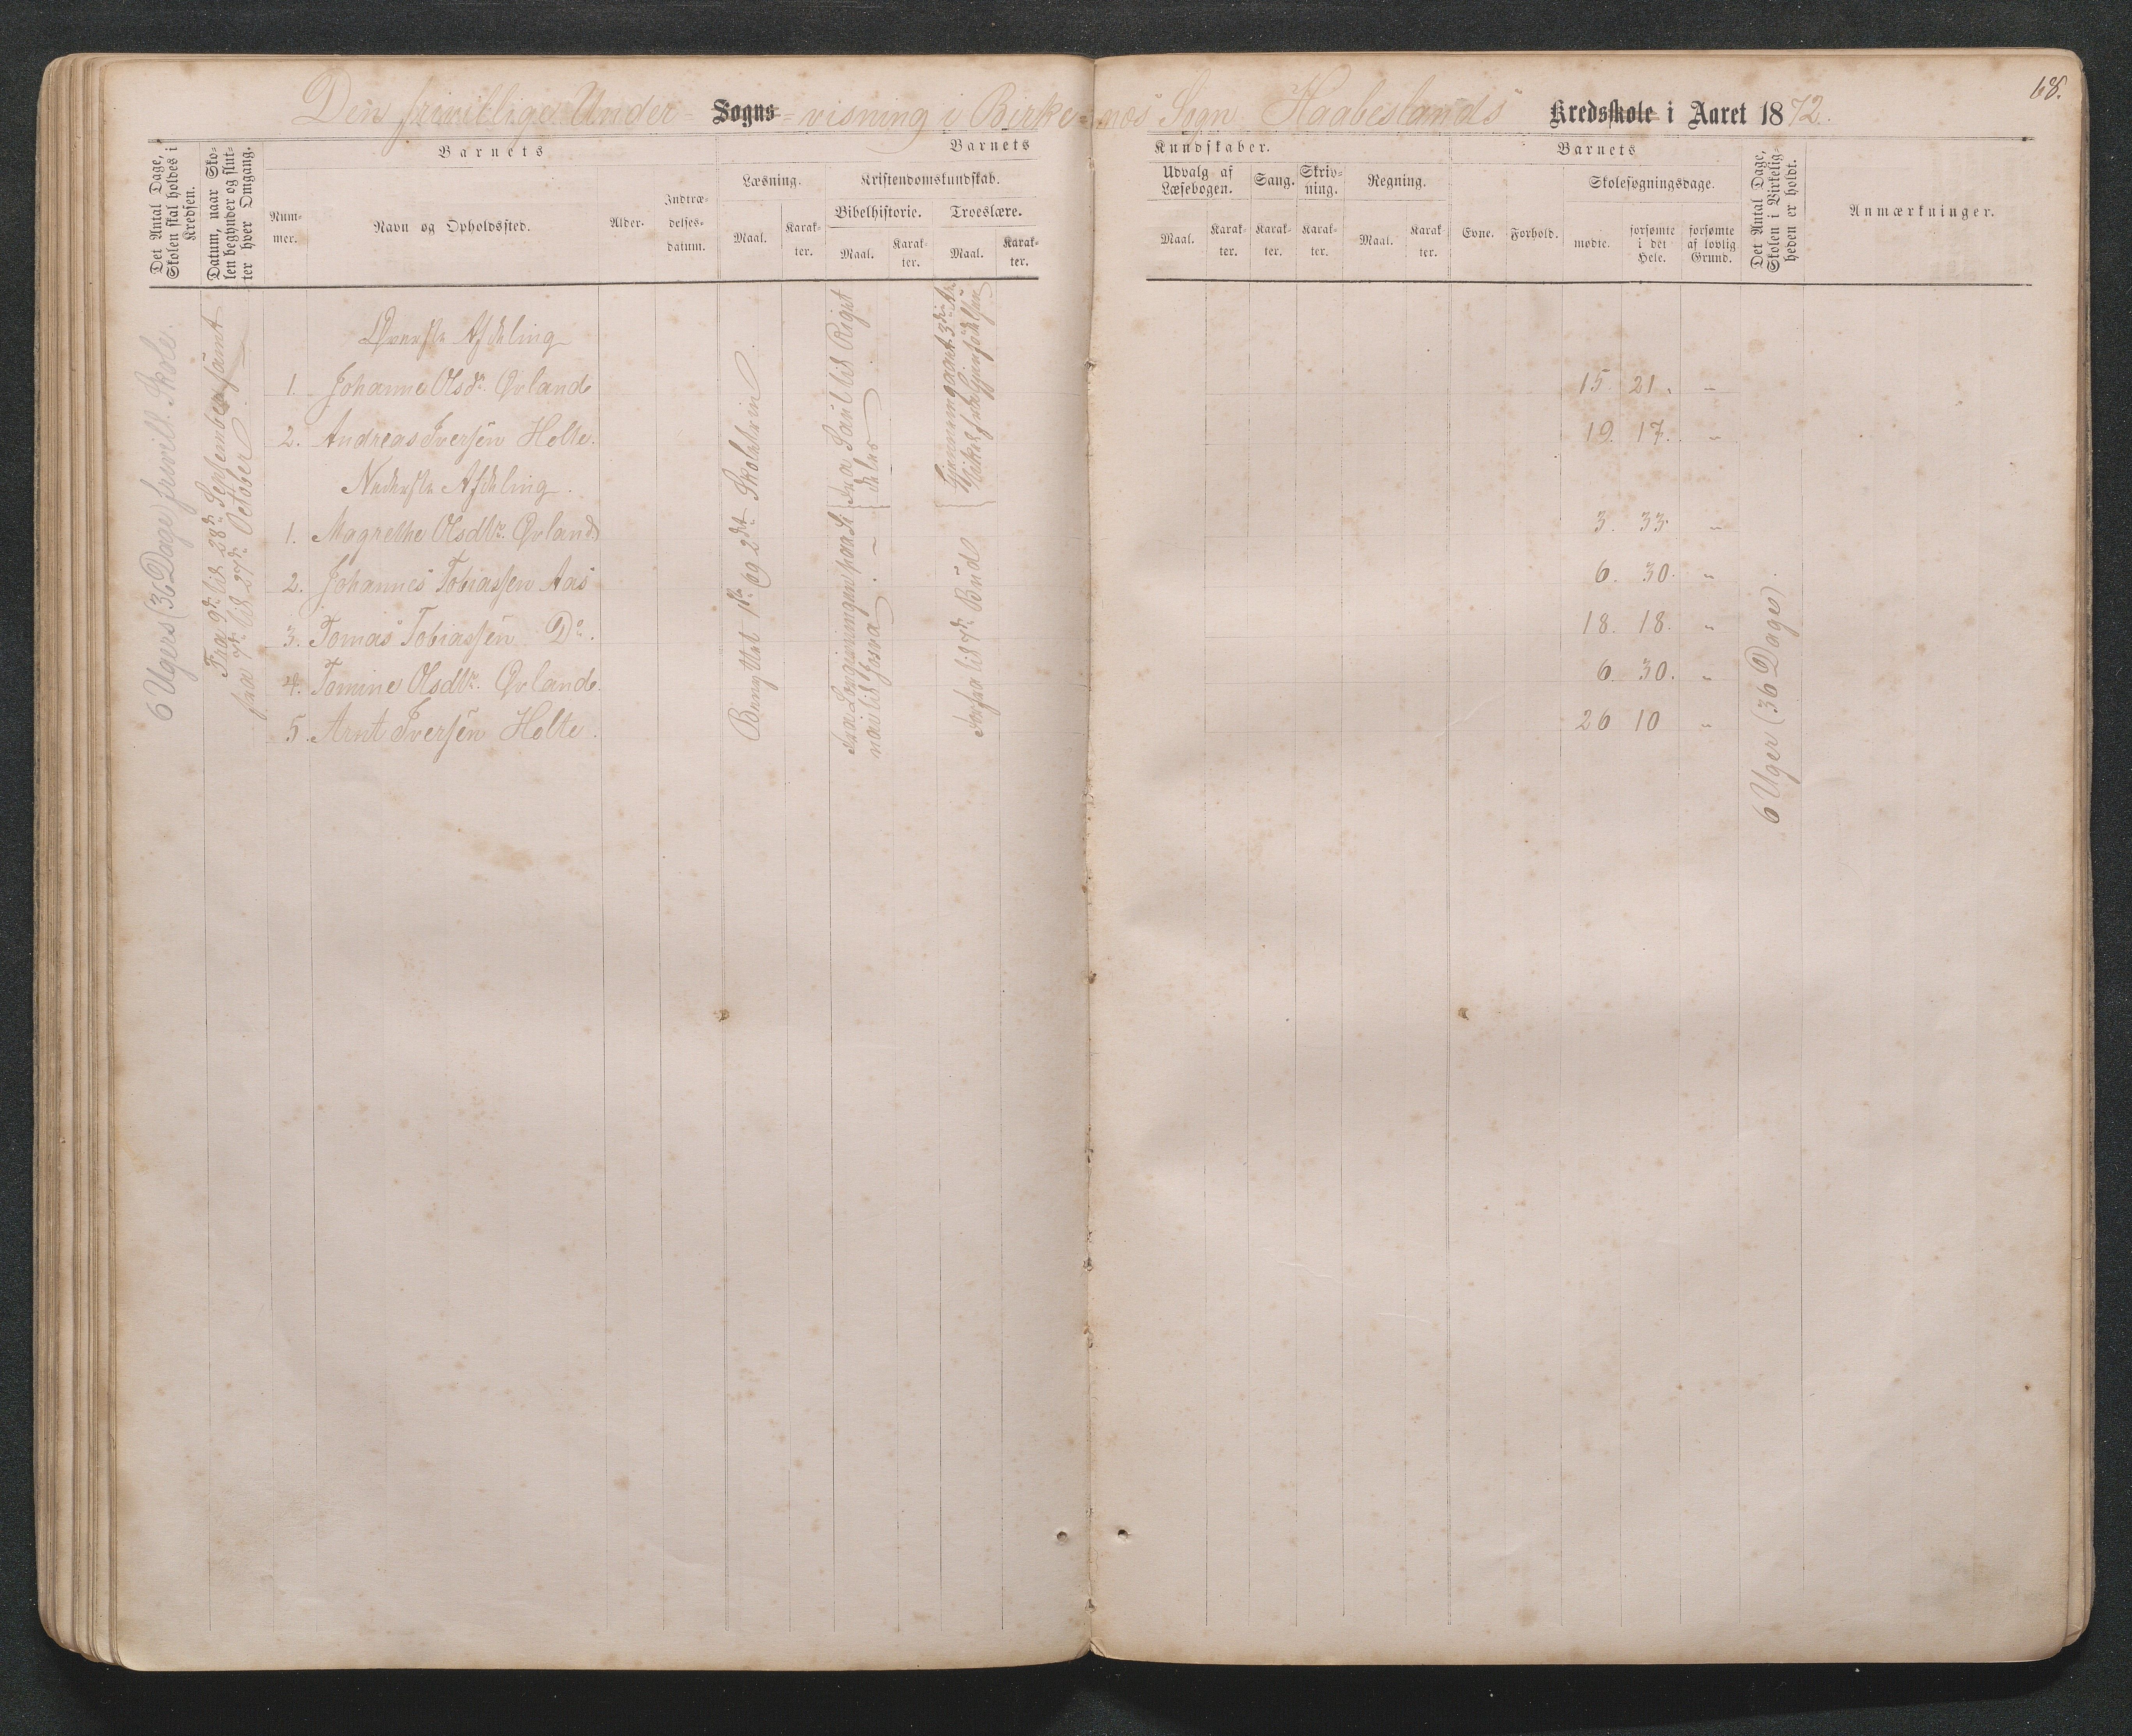 68.
Den frivillige Under= Sogns= visning i Birke=næs Sogn Haabeslands Kredsskole i Aaret 1872.
Det Antal Dage, Skolen skal holdes i Kredsen.
Datum, naar Skolen begynder og slutter hver Omgang.
Barnets
Nummer.
Navn og Opholdssted.
Alder.
Indtrædelsesdatum.
Barnets
Læsning.
Maal.
Karakter.
Kristendomskundskab.
Bibelhistorie.
Maal.
Karakter.
Troeslære.
Maal.
Karakter.
Kundskaber.
Udvalg af Læsebogen.
Maal.
Karakter.
Sang.
Karakter.
Skrivning.
Karakter.
Regning.
Maal.
Karakter.
Barnets
Evne.
Forhold.
Skolesøgningsdage.
mødte.
forsømte i det Hele.
forsømte af lovlig Grund.
Det Antal Dage, Skolen i Virkeligheden er holdt.
Anmærkninger.
6 Ugers (36 Dage) frivill. Skole.
Fra 9de til 28de September samt
fra 7de til 27de October
Øverste Afdeling
1. Johanne Olsdr. Øvland 15. 21. "
2. Andreas Iversen Holte. 19. 17. "
Nederste Afdeling.
1. Magrethe Olsdtr. Øvland 3. 33. "
2. Johannes Tobiassen Aas 6. 30. "
3. Tomas Tobiassen Do. 18. 18. "
4. Tomine Olsdtr. Øvland. 6. 30. "
5. Arnt Iversen Holte. 26 10 "
Benyttet 1ste og 2det Skoletrin.
Fra Saul til Riget
deles
Fra Lovgivningen paa Sinai til Josva
Forfra til 7de Bud
6 Uger (36 Dage).